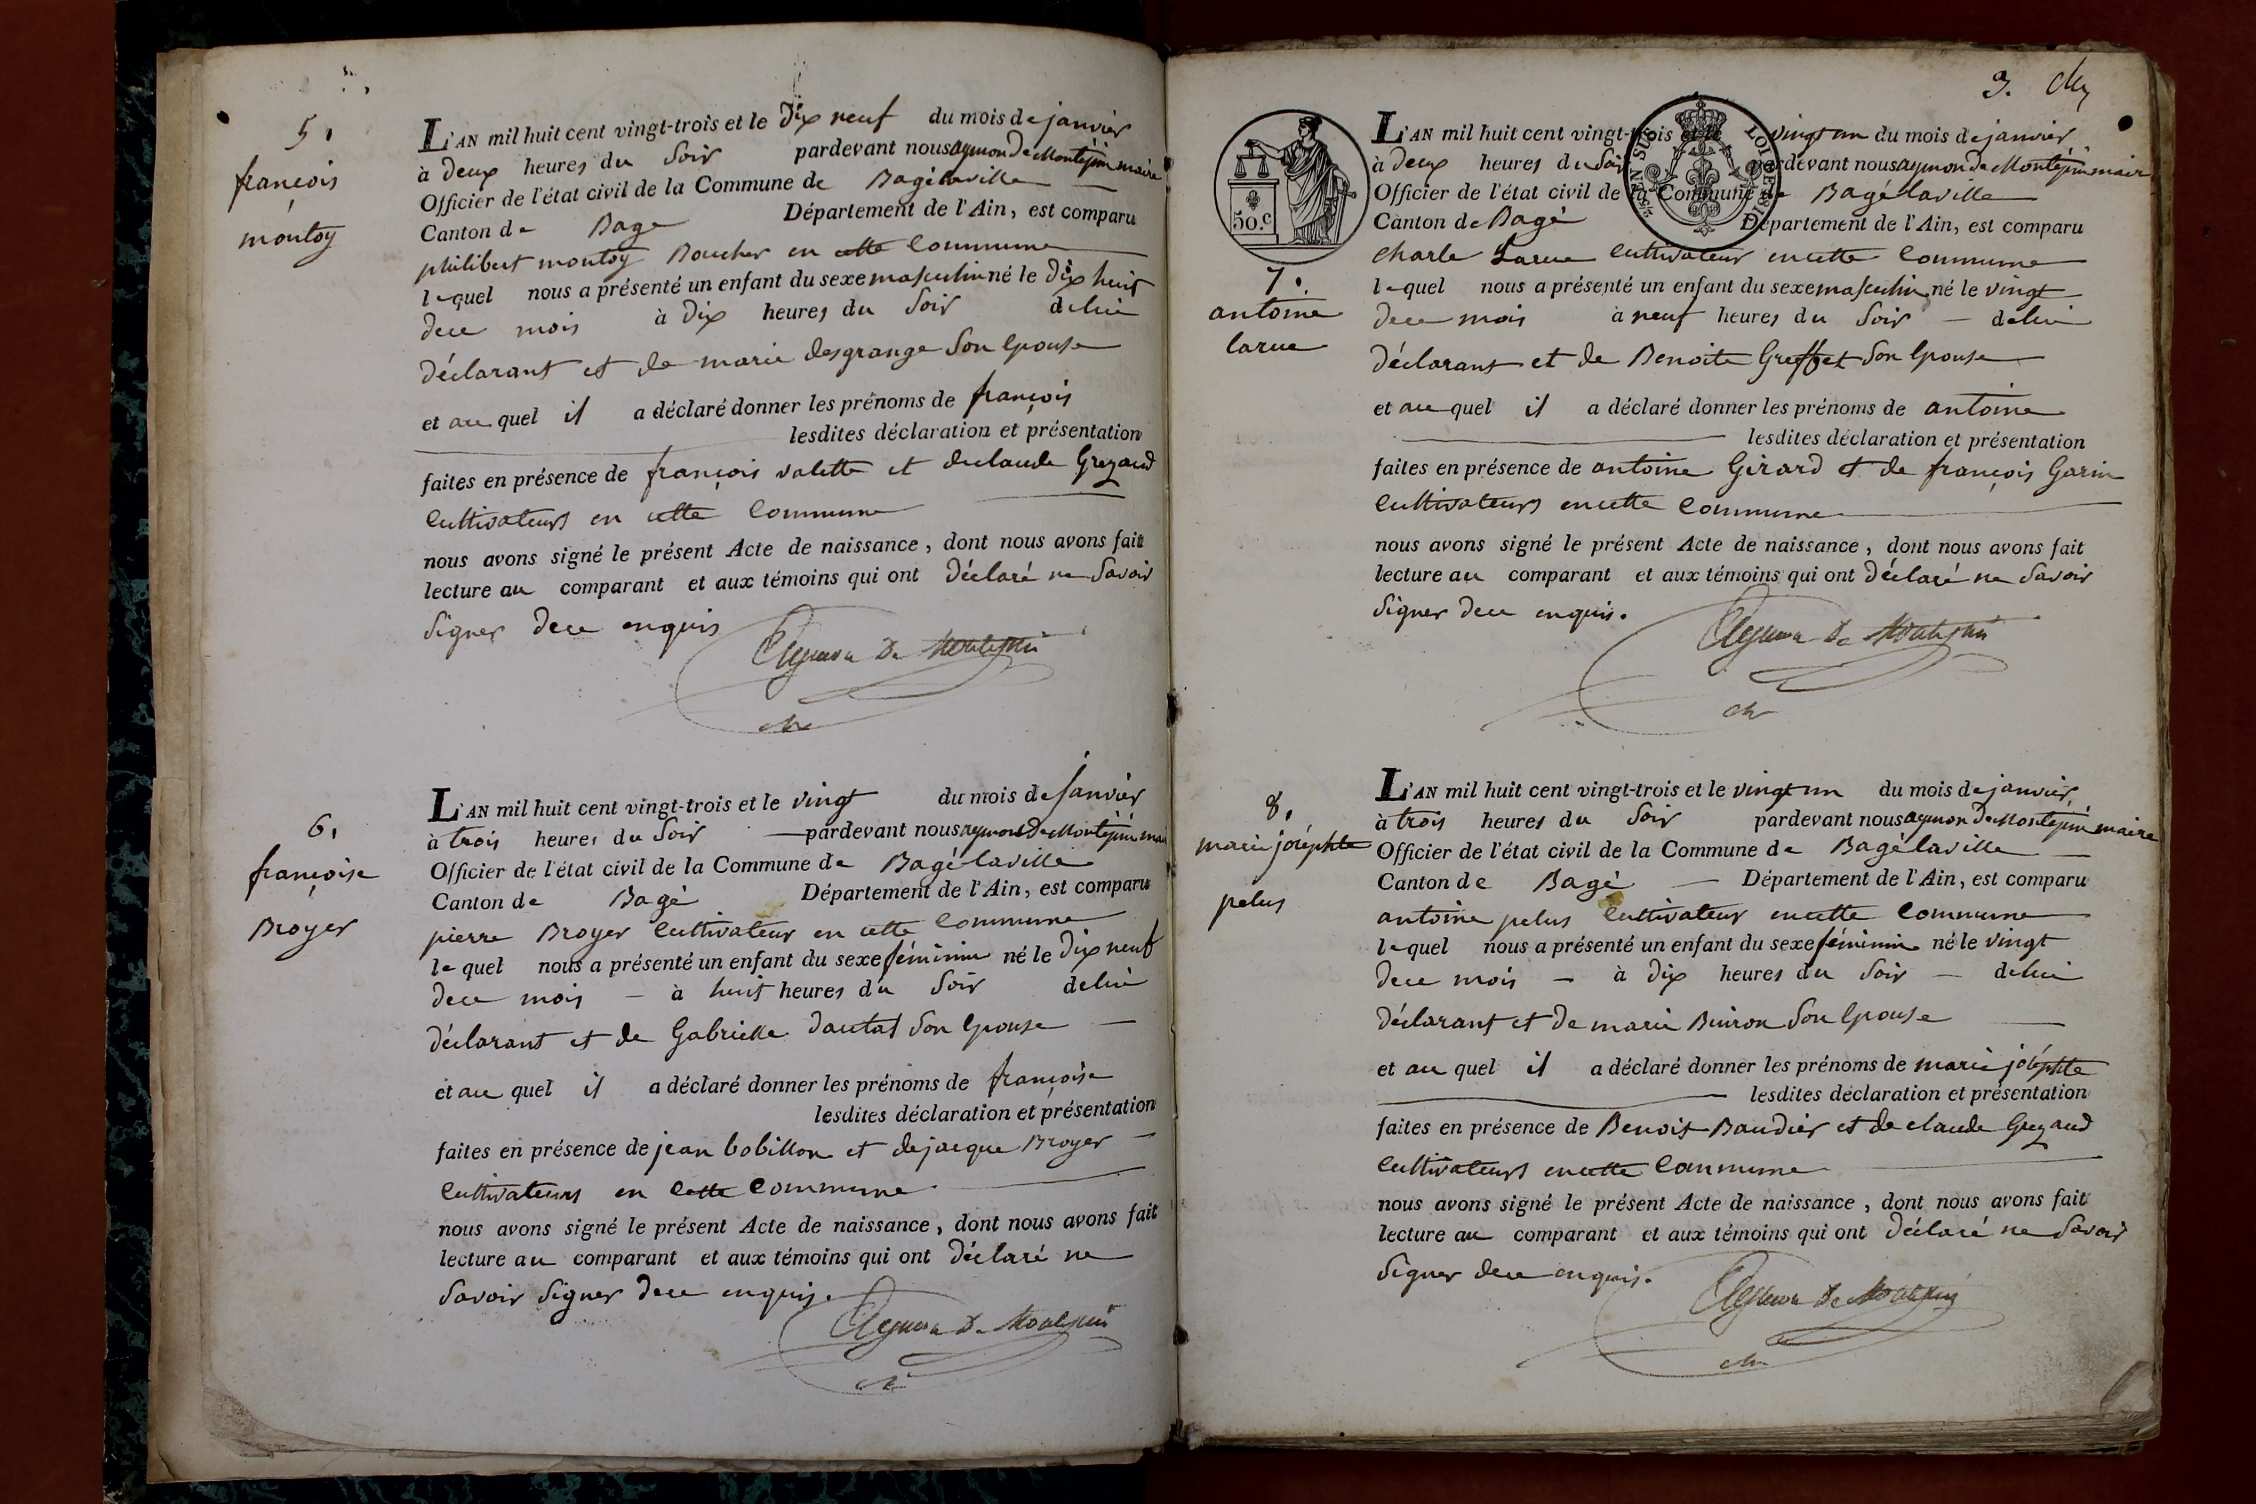 5.
françois
montoy
L'AN mil huit cent vingt-trois et le dix neuf du mois de janvier
à deux heures du soir pardevant nous aymon De Montépin maire
Officier de l'état civil de la Commune de Bagélaville
Canton de Bagé Département de l'Ain, est comparu
philibert montoy Boucher en cette commune
lequel nous a présenté un enfant du sexe masculin né le dix huit
dece mois à dix heures du soir delui
déclarant et de marie desgrange son epouse
et au quel il a déclaré donner les prénoms de françois
lesdites déclaration et présentation
faites en présence de françois valette et declaude Gregaud
cultivateurs en cette commune
nous avons signé le présent Acte de naissance, dont nous avons fait
lecture au comparant et aux témoins qui ont déclaré ne savoir
signer dece enquis
Aymon De Montepin
6.
françoise
Broyer
L'AN mil huit cent vingt-trois et le vingt du mois de janvier
à trois heures du soir pardevant nous aymon De Montépin mai
Officier de l'état civil de la Commune de Bagélaville
Canton de Bagé Département de l'Ain, est comparu
pierre Broyer cultivateur en cette commune
lequel nous a présenté un enfant du sexe féminin né le dix neuf
dece mois à huit heures du soir delui
déclarant et de Gabrielle dautat son epouse
et au quel il a déclaré donner les prénoms de françoise
lesdites déclaration et présentation
faites en présence de jean bobillon et dejacque Broyer
cultivateurs en cette commune
nous avons signé le présent Acte de naissance, dont nous avons fait
lecture au comparant et aux témoins qui ont déclaré ne
savoir signer dece enquis.
Aymon De Montepin
3.
50.c
7.
antoine
larue
L'AN mil huit cent vingt-trois et le vingt un du mois de janvier
à deux heures du soir pardevant nous aymon de Montépin maire
Officier de l'état civil de la Commune de Bagélaville
Canton de Bagé Département de l'Ain, est comparu
charle Larue cultivateur encette commune
lequel nous a présenté un enfant du sexe masculin né le vingt
dece mois à neuf heures du soir delui
déclarant et de Benoite Greffet son epouse
et au quel il a déclaré donner les prénoms de antoine
lesdites déclaration et présentation
faites en présence de antoine Girard et de françois Garin
cultivateurs encette commune
nous avons signé le présent Acte de naissance, dont nous avons fait
lecture au comparant et aux témoins qui ont déclaré ne savoir
signer dece enquis.
Aymon De Montepin
8.
marie joséphte
pelus
L'AN mil huit cent vingt-trois et le vingt un du mois de janvier,
à trois heures du soir pardevant nous aymon De Montépin maire
Officier de l'état civil de la Commune de Bagélaville
Canton de Bagé Département de l'Ain, est comparu
antoine pelus cultivateur encette commune
lequel nous a présenté un enfant du sexe féminin né le vingt
dece mois à dix heures du soir delui
déclarant et de marie Buiron son epouse
et au quel il a déclaré donner les prénoms de marie joséphte
lesdites déclaration et présentation
faites en présence de Benoit Baudier et de claude Gregaud
cultivateurs encette commune
nous avons signé le présent Acte de naissance, dont nous avons fait
lecture au comparant et aux témoins qui ont déclaré ne savoir
signer dece enquis.
Aymon De Montepin